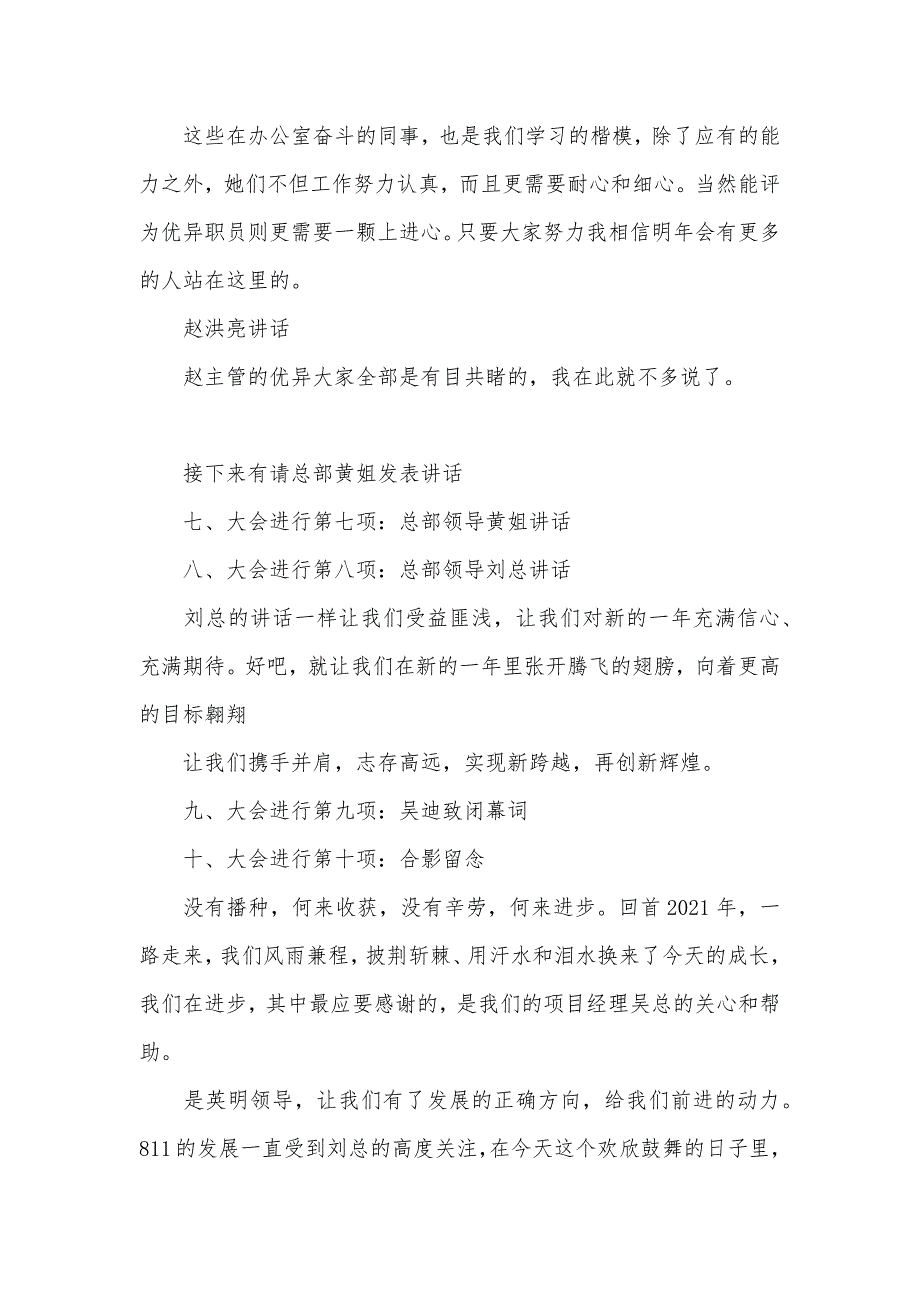 这些在办公室奋斗的同事，也是我们学习的楷模，除了应有的能
力之外，她们不但工作努力认真，而且更需要耐心和细心。当然能评
为优异职员则更需要一颗上进心。只要大家努力我相信明年会有更多
的人站在这里的。
赵洪亮讲话
赵主管的优异大家全部是有目共睹的，我在此就不多说了。
接下来有请总部黄姐发表讲话
七、大会进行第七项：总部领导黄姐讲话
八、大会进行第八项：总部领导刘总讲话
刘总的讲话一样让我们受益匪浅，让我们对新的一年充满信心、
充满期待。好吧，就让我们在新的一年里张开腾飞的翅膀，向着更高
的目标翱翔
让我们携手并肩，志存高远，实现新跨越，再创新辉煌。
九、大会进行第九项：吴迪致闭幕词
十、大会进行第十项：合影留念
没有播种，何来收获，没有辛劳，何来进步。回首2021年，一
路走来，我们风雨兼程，披荆斩棘、用汗水和泪水换来了今天的成长，
我们在进步，其中最应要感谢的，是我们的项目经理吴总的关心和帮
助。
是英明领导，让我们有了发展的正确方向，给我们前进的动力。
811的发展一直受到刘总的高度关注，在今天这个欢欣鼓舞的日子里，